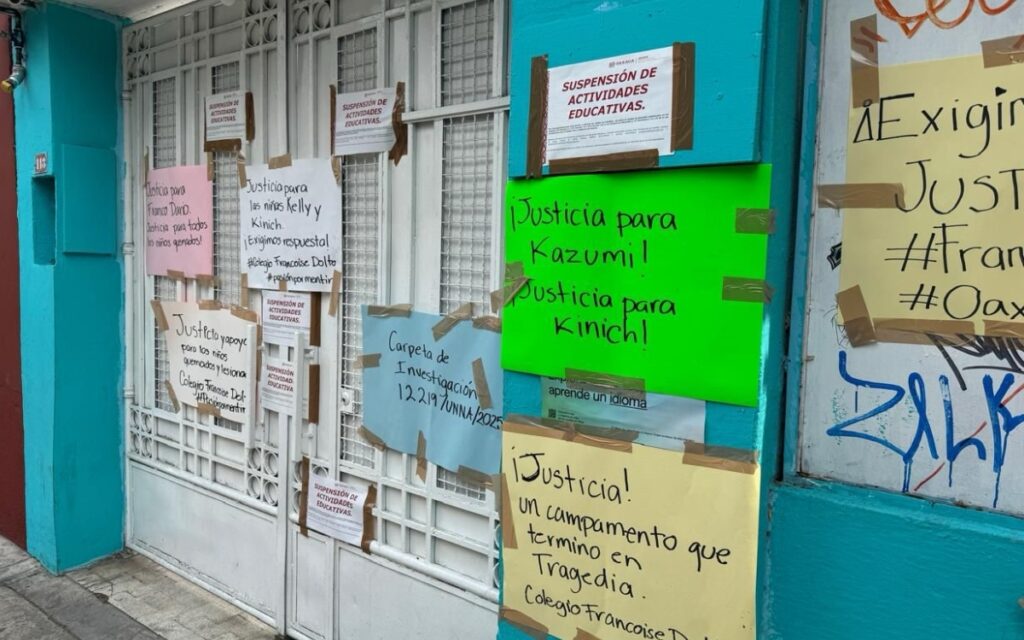 SUSPENSIÓN DE
ACTIVIDADES
EDUCATIVAS.
SUSPENSIÓN DE
ACTIVIDADES
EDUCATIVAS.
Justicia para
Franco Dario.
Justicia para todos
los niños quemados!
Justicia para
las niñas Kelly y
Kinich.
¡Exigimos respuesta!
#Colegio Francoise Dolto
#pasiónpormentir
Justicia y apoyo
para los niños
quemados y lesiona
Colegio Francoise Dolt
SUSPENSIÓN DE
ACTIVIDADES
EDUCATIVAS.
SUSPENSIÓN DE
ACTIVIDADES
EDUCATIVAS.
Carpeta de
Investigación
12219/UNNA/2025
SUSPENSIÓN DE
ACTIVIDADES
EDUCATIVAS.
SUSPENSIÓN DE
ACTIVIDADES
EDUCATIVAS.
¡Justicia para
Kazumi!
Justicia para
Kinich!
aprende un idioma
¡Justicia!
un campamento que
termino en
Tragedia.
Colegio Francoise Dolto
¡Exigim
JUST
#Fran
#Oax